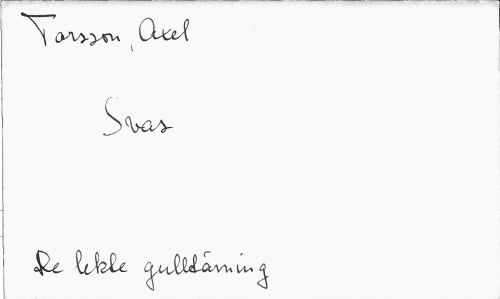 Torsson, Axel
Svar
De lekte gulltärning